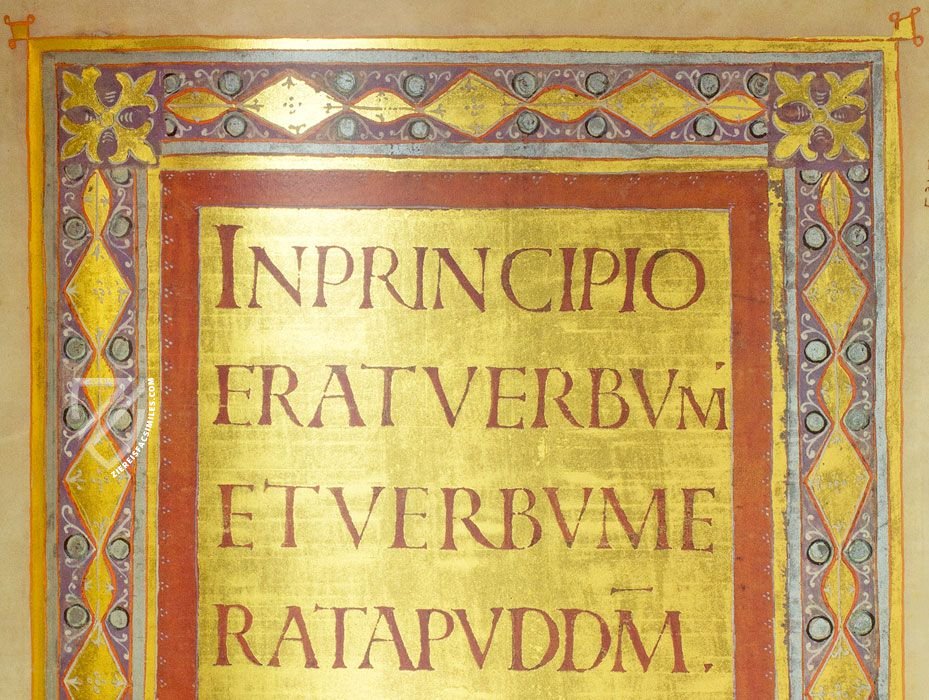 INPRINCIPIO
ERATVERBVM
ETVERBVME
RATAPVDDM̅.
ZIEREISFACSIMILES.COM